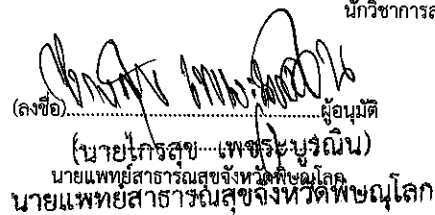 นักวิชาการส
(ลงชื่อ)..............................ผู้อนุมัติ
(นายไกรสุข เพชระบูรณิน)
นายแพทย์สาธารณสุขจังหวัดพิษณุโลก
นายแพทย์สาธารณสุขจังหวัดพิษณุโลก